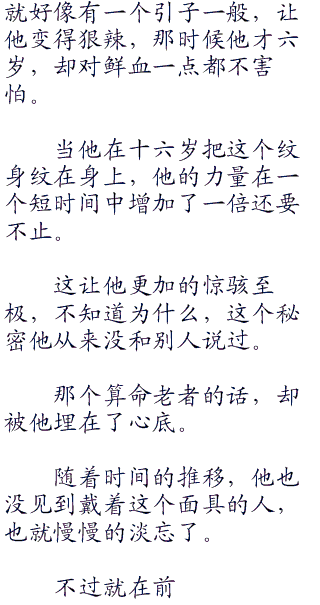 就好像有一个引子一般，让
他变得狠辣，那时候他才六
岁，却对鲜血一点都不害
怕。
当他在十六岁把这个纹
身纹在身上，他的力量在一
个短时间中增加了一倍还要
不止。
这让他更加的惊骇至
极，不知道为什么，这个秘
密他从来没和别人说过。
那个算命老者的话，却
被他埋在了心底。
随着时间的推移，他也
没见到戴着这个面具的人，
也就慢慢的淡忘了。
不过就在前